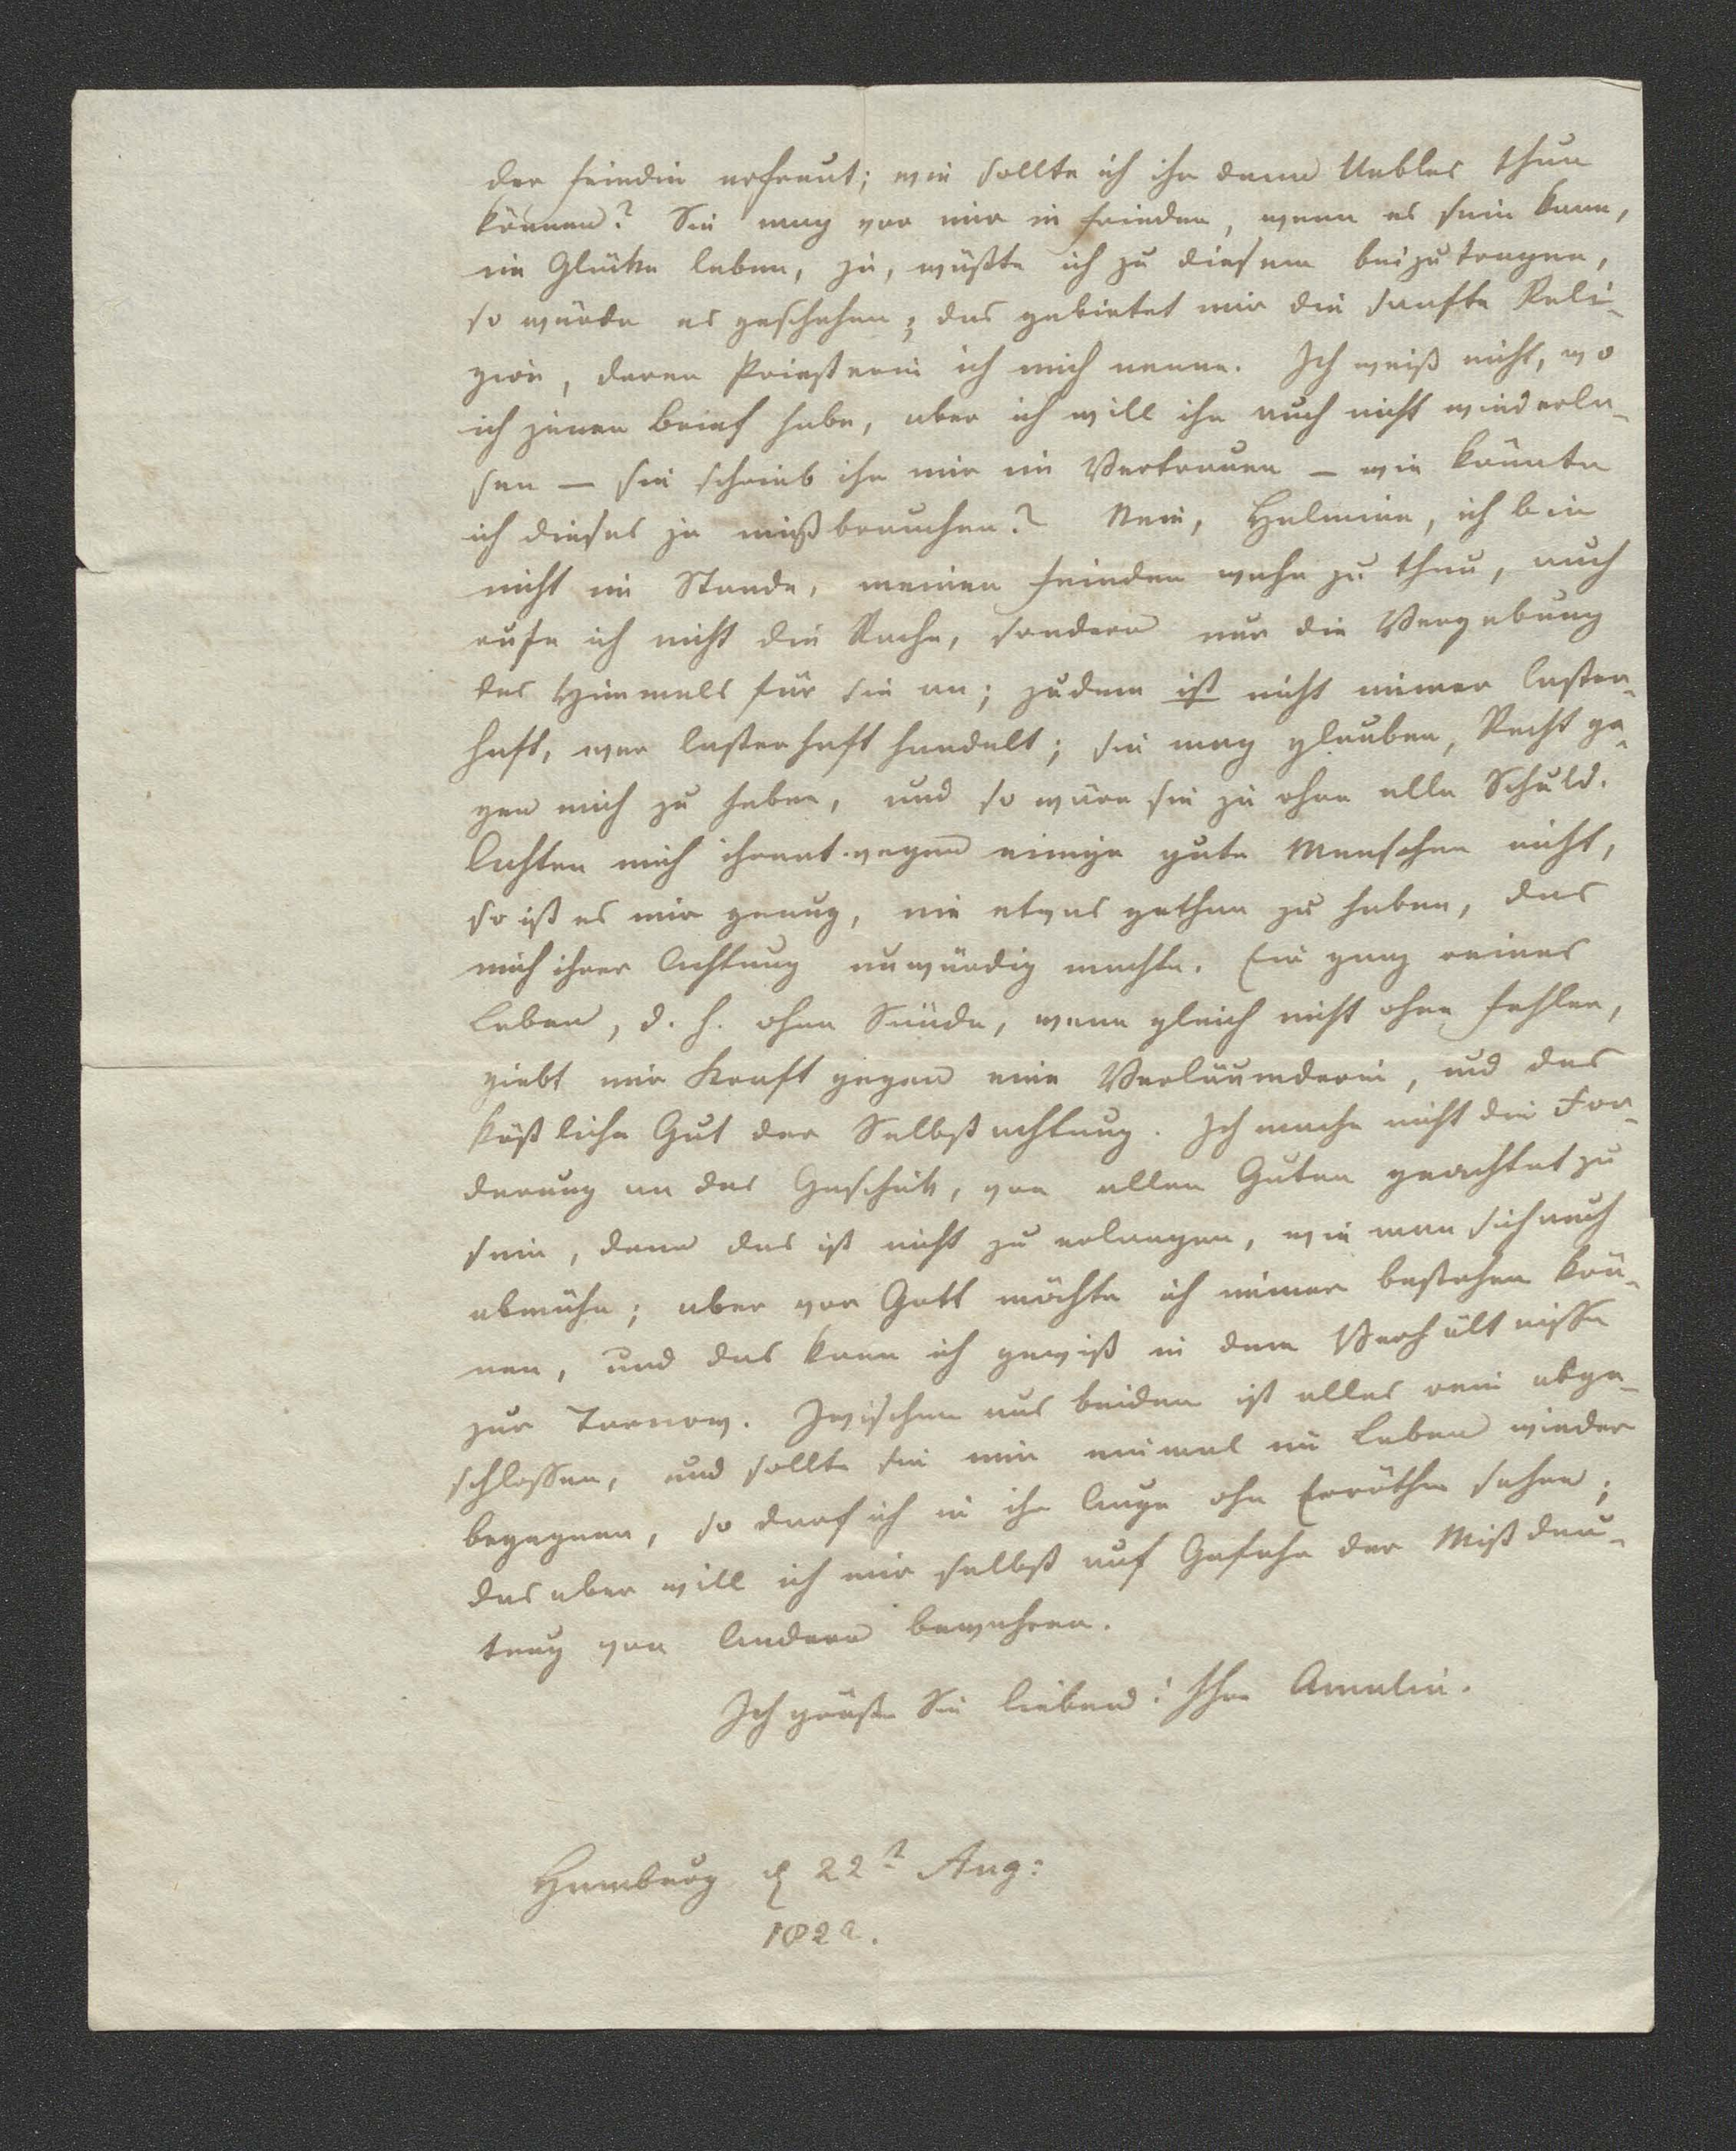 der Feindin erfreut; wie sollte ich ihr denn Uebles thun
können? Sie mag vor mir in Frieden, wenn es sein kann,
im Glücke leben, ja, wüßte ich zu diesem beizutragen,
so würde es geschehen; das gebietet mir die sanfte Reli-
gion, deren Priesterin ich mich nenne. Ich weiß nicht, wo
ich jenen Brief habe, aber ich will ihn auch nicht wiederle-
sen — sie schrieb ihn mir im Vertrauen — wie könnte
ich dieses je mißbrauchen? Nein, Helmine, ich bin
nicht im Stande, meinen Feinden wehe zu thun, auch
rufe ich nicht die Rache, sondern nur die Vergebung
des Himmels für sie an; zudem ist nicht immer laster-
haft, wer lasterhaft handelt; sie mag glauben, Recht ge-
gen mich zu haben, und so wäre sie ja ohne alle Schuld.
Achten mich ihrentwegen einige gute Menschen nicht,
so ist es mir genug, nie etwas gethan zu haben, das
mich ihrer Achtung unwürdig machte. Ein ganz reines
Leben, d. h. ohne Sünde, wenn gleich nicht ohne Fehler,
giebt mir Kraft gegen eine Verläumderin, und das
köstliche Gut der Selbstachtung. Ich mache nicht die For-
derung an das Geschick, von allen Guten geachtet zu
sein, denn das ist nicht zu erlangen, wie man sich auch
abmühe; aber vor Gott möchte ich immer bestehen kön-
nen, und das kann ich gewiß in dem Verhältnisse
zur Tarnow. Zwischen uns beiden ist alles rein abge-
schlossen, und sollte sie mir einmal im Leben wieder
begegnen, so darf ich in ihr Auge ohne Erröthen sehen;
das aber will ich mir selbst auf Gefahr der Mißdeu-
tung von Andern bewahren.
Ich grüße Sie liebend! Ihre Amalie.
Hamburg d 22t Aug:
1822.